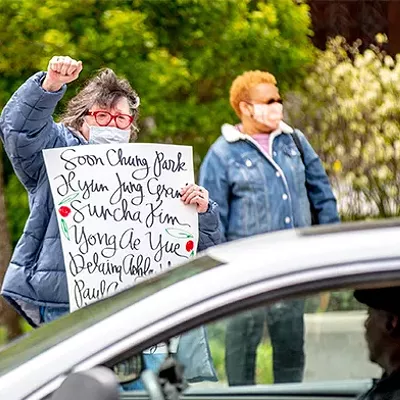 Soon Chung Park
Hyun Jung Grant
Suncha Kim
Yong Ae Yue
Delaina Ashley
Paul